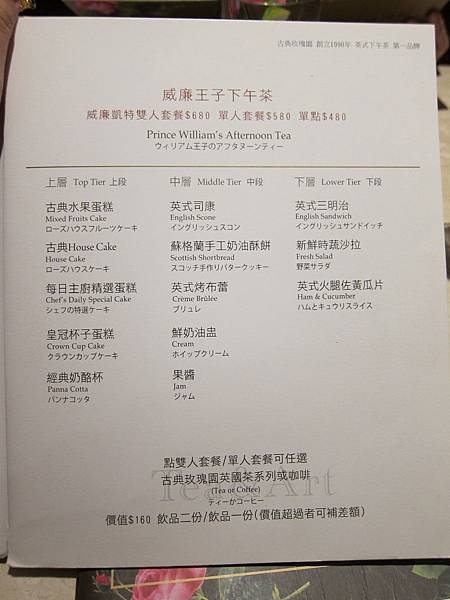 古典玫瑰園 創立1990年 英式下午茶 第一品牌
威廉王子下午茶
威廉凱特雙人套餐$680 單人套餐$580 單點$480
Prince William's Afternoon Tea
ウィリアム王子のアフタヌーンティー
上層 Top Tier 上段
古典水果蛋糕
Mixed Fruits Cake
ローズハウスフルーツケーキ
古典House Cake
House Cake
ローズハウスケーキ
每日主廚精選蛋糕
Chef's Daily Special Cake
シェフの特選ケーキ
皇冠杯子蛋糕
Crown Cup Cake
クラウンカップケーキ
經典奶酪杯
Panna Cotta
パンナコッタ
中層 Middle Tier 中段
英式司康
English Scone
イングリッシュスコン
蘇格蘭手工奶油酥餅
Scottish Shortbread
スコッチ手作りバタークッキー
英式烤布蕾
Crème Brûlée
ブリュレ
鮮奶油盅
Cream
ホイップクリーム
果醬
Jam
ジャム
下層 Lower Tier 下段
英式三明治
English Sandwich
イングリッシュサンドイッチ
新鮮時蔬沙拉
Fresh Salad
野菜サラダ
英式火腿佐黃瓜片
Ham & Cucumber
ハムとキュウリスライス
Tea & Art
點雙人套餐/單人套餐可任選
古典玫瑰園英國茶系列或咖啡
(Tea or Coffee)
ティーかコーヒー
價值$160 飲品二份/飲品一份(價值超過者可補差額)